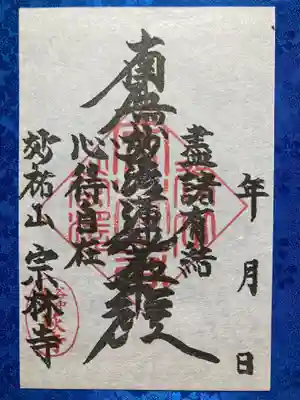 年 月 日
盡諸有結
南無妙法蓮華経
心得自在
妙祐山 宗林寺